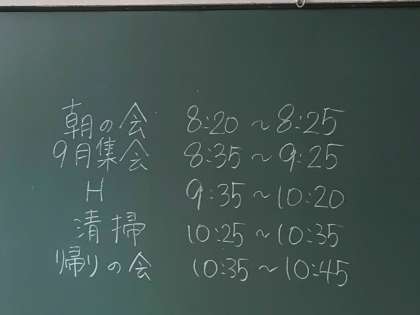 朝の会 8:20 ~ 8:25
9月集会 8:35 ~ 9:25
H 9:35 ~ 10:20
清掃 10:25 ~ 10:35
帰りの会 10:35 ~ 10:45